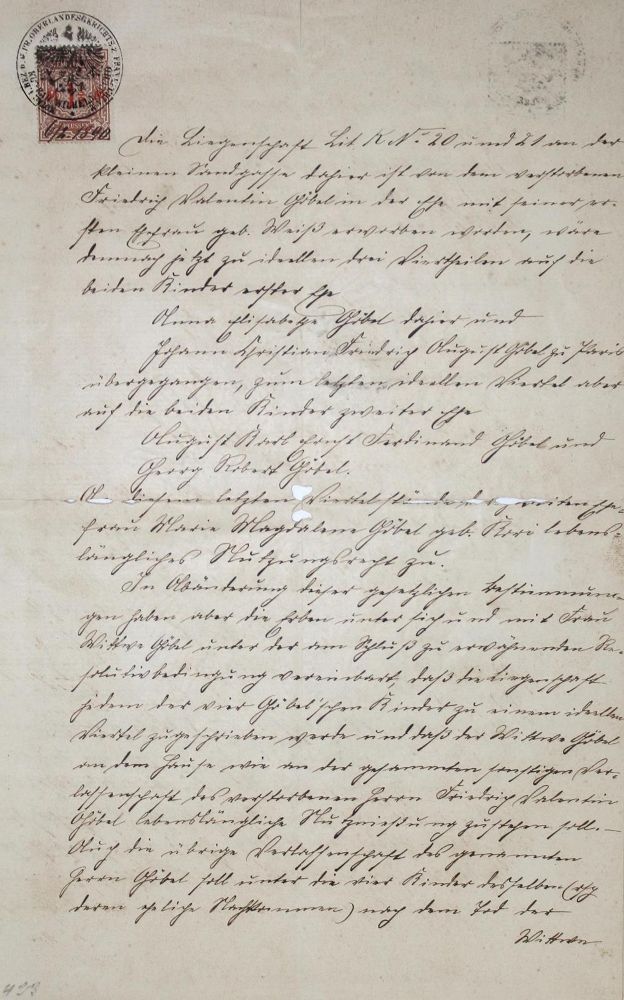 Die Liegenschaft Lit K No 20 und 21 an der
kleinen Sandgasse dahier ist von dem verstorbenen
Friedrich Valentin Göbel in der Ehe mit seiner er-
sten Ehefrau geb. Weiß erworben worden, wäre
demnach jetzt zu ideellen drei Viertheilen auf die
beiden Kinder erster Ehe
Anna Elisabethe Göbel dahier und
Johann Christian Friedrich August Göbel zu Paris
übergegangen, zum letzten ideellen Viertel aber
auf die beiden Kinder zweiter Ehe
August Karl Ernst Ferdinand Göbel und
Georg Robert Göbel.
diesem letzten Viertel stünde der zweiten Ehe-
frau Marie Magdalene Göbel geb. Kori lebens-
längliches Nutzungsrecht zu.
In Abänderung dieser gesetzlichen Bestimmun-
gen haben aber die Erben unter sich und mit Frau
Wittwe Göbel unter der am Schluß zu erwähnenden Re-
solutivbedingung vereinbart, daß die Liegenschaft
jedem der vier Göbel'schen Kinder zu einem ideellen
Viertel zugeschrieben werde und daß der Wittwe Göbel
an dem Hause wie an der gesammten sonstigen Ver-
lassenschaft des verstorbenen Herrn Friedrich Valentin
Göbel lebenslängliche Nutznießung zustehen soll. —
Auch die übrige Verlassenschaft des genannten
Herrn Göbel soll unter die vier Kinder desselben (resp
deren eheliche Nachkommen) nach dem Tod der
Wittwe